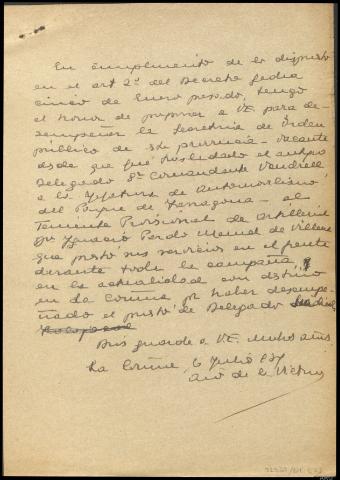 En cumplimiento de lo dispuesto
en el art 2º del Decreto fecha
cinco de Enero pasado, tengo
el honor de proponer a VE. para de-
sempeñar la Secretaria de Orden
público de esta provincia - vacante
desde que fué trasladado el antiguo
Delegado Sr Comandante Vaudrell
a la Jefatura de Automovilismo
del Parque de Zaragoza - al
Teniente Provisional de Artilleria
Dn Ignacio Pardo Manuel de Villena
que prestó sus servicios en el frente
durante toda la campaña, y
en la actualidad con destino
en La Coruña por haber desempe-
ñado el puesto de Delegado
Dios guarde a VE. muchos años
La Coruña 6 Julio
Año de la Victoria